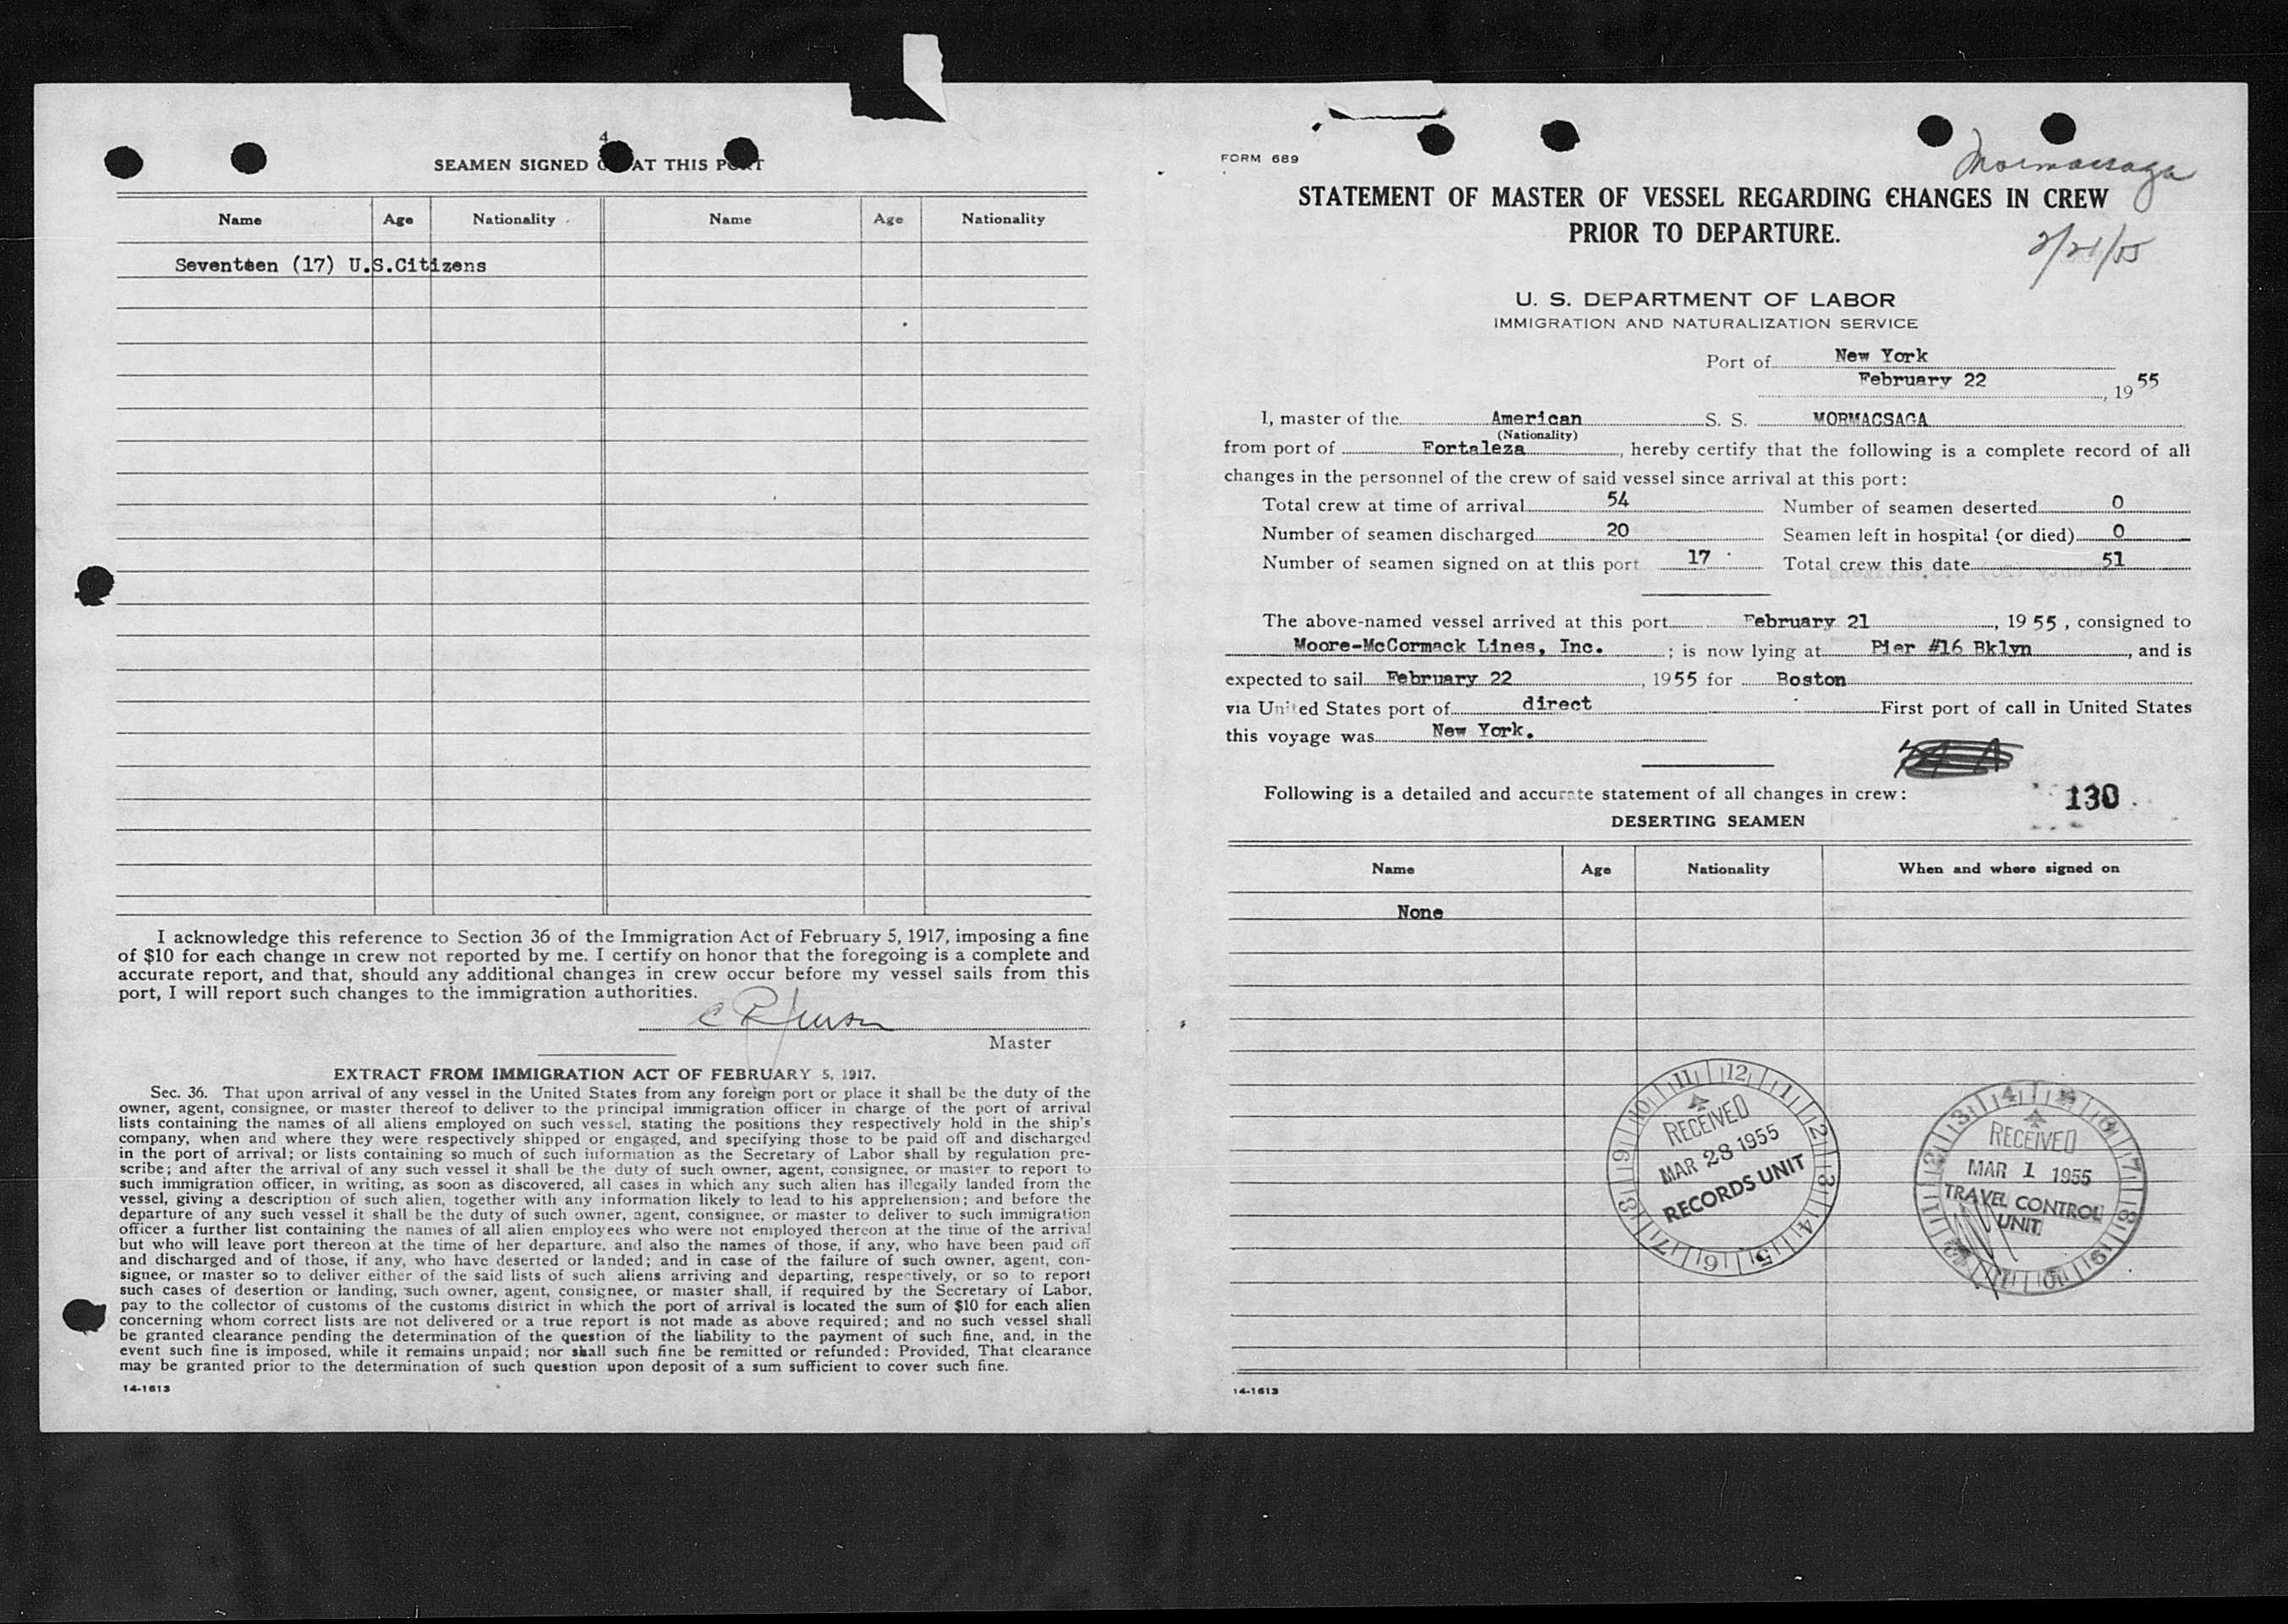 4
SEAMEN SIGNED AT THIS PORT
Name Age Nationality Name Age Nationality
Seventeen (17) U.S.Citizens
I acknowledge this reference to Section 36 of the Immigration Act of February 5, 1917, imposing a fine
of $10 for each change in crew not reported by me. I certify on honor that the foregoing is a complete and
accurate report, and that, should any additional changes in crew occur before my vessel sails from this
port, I will report such changes to the immigration authorities.
Master
EXTRACT FROM IMMIGRATION ACT OF FEBRUARY 5, 1917.
Sec. 36. That upon arrival of any vessel in the United States from any foreign port or place it shall be the duty of the
owner, agent, consignee, or master thereof to deliver to the principal immigration officer in charge of the port of arrival
lists containing the names of all aliens employed on such vessel, stating the positions they respectively hold in the ship's
company, when and where they were respectively shipped or engaged, and specifying those to be paid off and discharged
in the port of arrival; or lists containing so much of such information as the Secretary of Labor shall by regulation pre-
scribe; and after the arrival of any such vessel it shall be the duty of such owner, agent, consignee, or master to report to
such immigration officer, in writing, as soon as discovered, all cases in which any such alien has illegally landed from the
vessel, giving a description of such alien, together with any information likely to lead to his apprehension; and before the
departure of any such vessel it shall be the duty of such owner, agent, consignee, or master to deliver to such immigration
officer a further list containing the names of all alien employees who were not employed thereon at the time of the arrival
but who will leave port thereon at the time of her departure, and also the names of those, if any, who have been paid off
and discharged and of those, if any, who have deserted or landed; and in case of the failure of such owner, agent, con-
signee, or master so to deliver either of the said lists of such aliens arriving and departing, respectively, or so to report
such cases of desertion or landing, such owner, agent, consignee, or master shall, if required by the Secretary of Labor,
pay to the collector of customs of the customs district in which the port of arrival is located the sum of $10 for each alien
concerning whom correct lists are not delivered or a true report is not made as above required; and no such vessel shall
be granted clearance pending the determination of the question of the liability to the payment of such fine, and, in the
event such fine is imposed, while it remains unpaid; nor shall such fine be remitted or refunded: Provided, That clearance
may be granted prior to the determination of such question upon deposit of a sum sufficient to cover such fine.
14-1613
FORM 689
Mormacsaga
STATEMENT OF MASTER OF VESSEL REGARDING CHANGES IN CREW
PRIOR TO DEPARTURE.
2/21/55
U. S. DEPARTMENT OF LABOR
IMMIGRATION AND NATURALIZATION SERVICE
Port of New York
February 22, 1955
I, master of the American S. S. MORMACSAGA
(Nationality)
from port of Fortaleza, hereby certify that the following is a complete record of all
changes in the personnel of the crew of said vessel since arrival at this port:
Total crew at time of arrival 54 Number of seamen deserted 0
Number of seamen discharged 20 Seamen left in hospital (or died) 0
Number of seamen signed on at this port 17 Total crew this date 51
The above-named vessel arrived at this port February 21, 1955, consigned to
Moore-McCormack Lines, Inc. ; is now lying at Pier #16 Bklyn, and is
expected to sail February 22, 1955 for Boston
via United States port of direct First port of call in United States
this voyage was New York.
Following is a detailed and accurate statement of all changes in crew:
130
DESERTING SEAMEN
Name Age Nationality When and where signed on
None
RECEIVED
MAR 28 1955
RECORDS UNIT
RECEIVED
MAR 1 1955
TRAVEL CONTROL
UNIT
14-1613